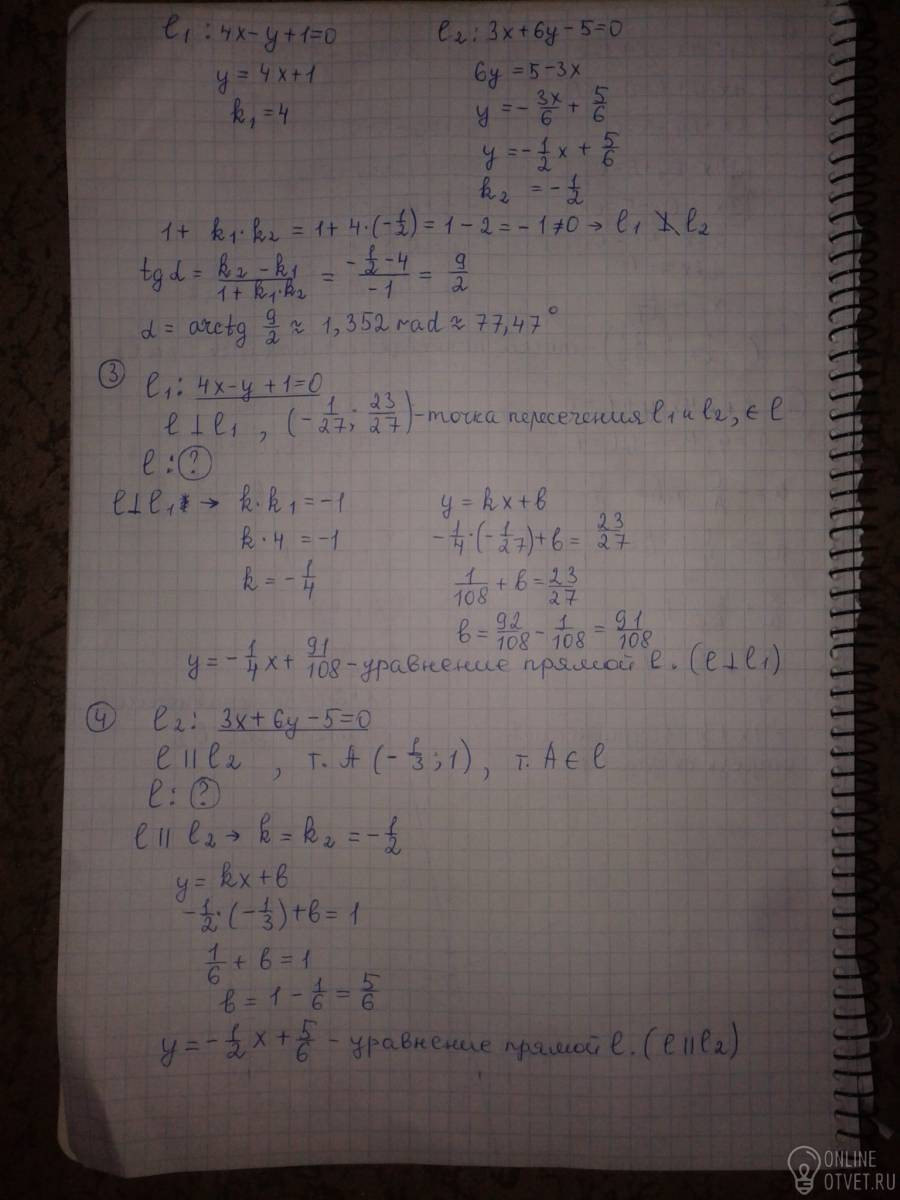 l₁: 4x-y+1=0
y = 4x+1
k₁=4
l₂: 3x+6y-5=0
6y=5-3x
y=-3x/6+5/6
y=-1/2x+5/6
k₂ =-1/2
1+ k₁·k₂ = 1+4·(-1/2)=1-2=-1≠0→ l₁ ⊥̸ l₂
tg α = (k₂-k₁)/(1+k₁·k₂) = (-1/2-4)/-1 = 9/2
α = arctg 9/2 ≈ 1,352 rad ≈ 77,47°
③ l₁: 4x-y+1=0
l⊥l₁, (-1/27; 23/27)-точка пересечения l₁ и l₂, ∈ l
l: ?
l⊥l₁ → k·k₁=-1
k·4 =-1
k=-1/4
y=kx+b
-1/4·(-1/27)+b= 23/27
1/108+b=23/27
b=92/108-1/108=91/108
y=-1/4x+91/108-уравнение прямой l. (l⊥l₁)
④ l₂: 3x+6y-5=0
l || l₂, т. A (-1/3; 1), т. A∈ l
l: ?
l || l₂→ k=k₂=-1/2
y=kx+b
-1/2·(-1/3)+b=1
1/6+b=1
b=1-1/6=5/6
y=-1/2x+5/6 - уравнение прямой l. (l || l₂)
ONLINE
OTVET.RU